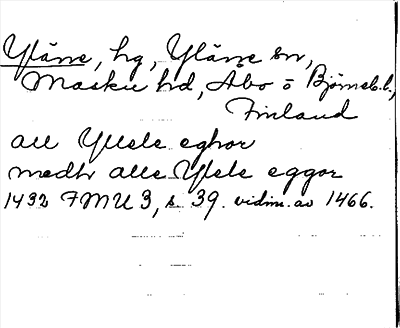 Yläne, hg, Yläne sn,
Masku hd, Åbo o Björneb. l.,
Finland
all Yllele eghor
medh alle Ylele eggor
1432 FMU 3, s. 39. vidim. av 1466.